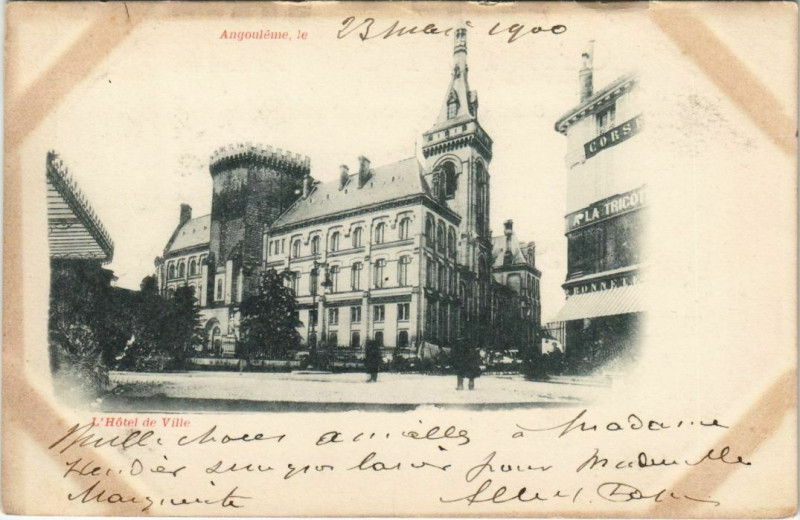 Angoulême, le 23 mai 1900
CORSE
A LA TRICOT
BONNETE
L'Hôtel de Ville
Mille choses à Madame
un gros baiser pour Mademoiselle
Marguerite Albert